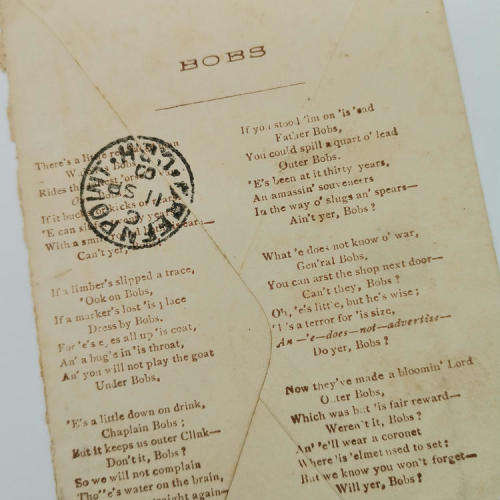 BOBS
There's a little
Rides
If it
'E can
With a
Can't yer,
If a limber's slipped a trace,
'Ook on Bobs,
If a marker's lost 'is place
Dress by Bobs.
For 'e's eyes all up 'is coat,
An' a bug's in 'is throat,
An' you will not play the goat
Under Bobs.
'E's a little down on drink,
Chaplain Bobs;
But it keeps us outer Clink—
Don't it, Bobs?
So we will not complain
Tho' 'e's water on the brain,
straight again—
If you stood 'im on 'is 'ead
Father Bobs,
You could spill a quart o' lead
Outer Bobs.
'E's been at it thirty years,
An amassin' souveneers
In the way o' slugs an' spears—
Ain't yer, Bobs?
What 'e does not know o' war,
Gen'ral Bobs,
You can arst the shop next door—
Can't they, Bobs?
Oh, 'e's little, but he's wise;
'E's a terror for 'is size,
An—'e—does—not—advertise—
Do yer, Bobs?
Now they've made a bloomin' Lord
Outer Bobs,
Which was but 'is fair reward—
Weren't it, Bobs?
An' 'e'll wear a coronet
Where 'is 'elmet used to set;
But we know you won't forget—
Will yer, Bobs?
GREEN POINT
C
11 SP